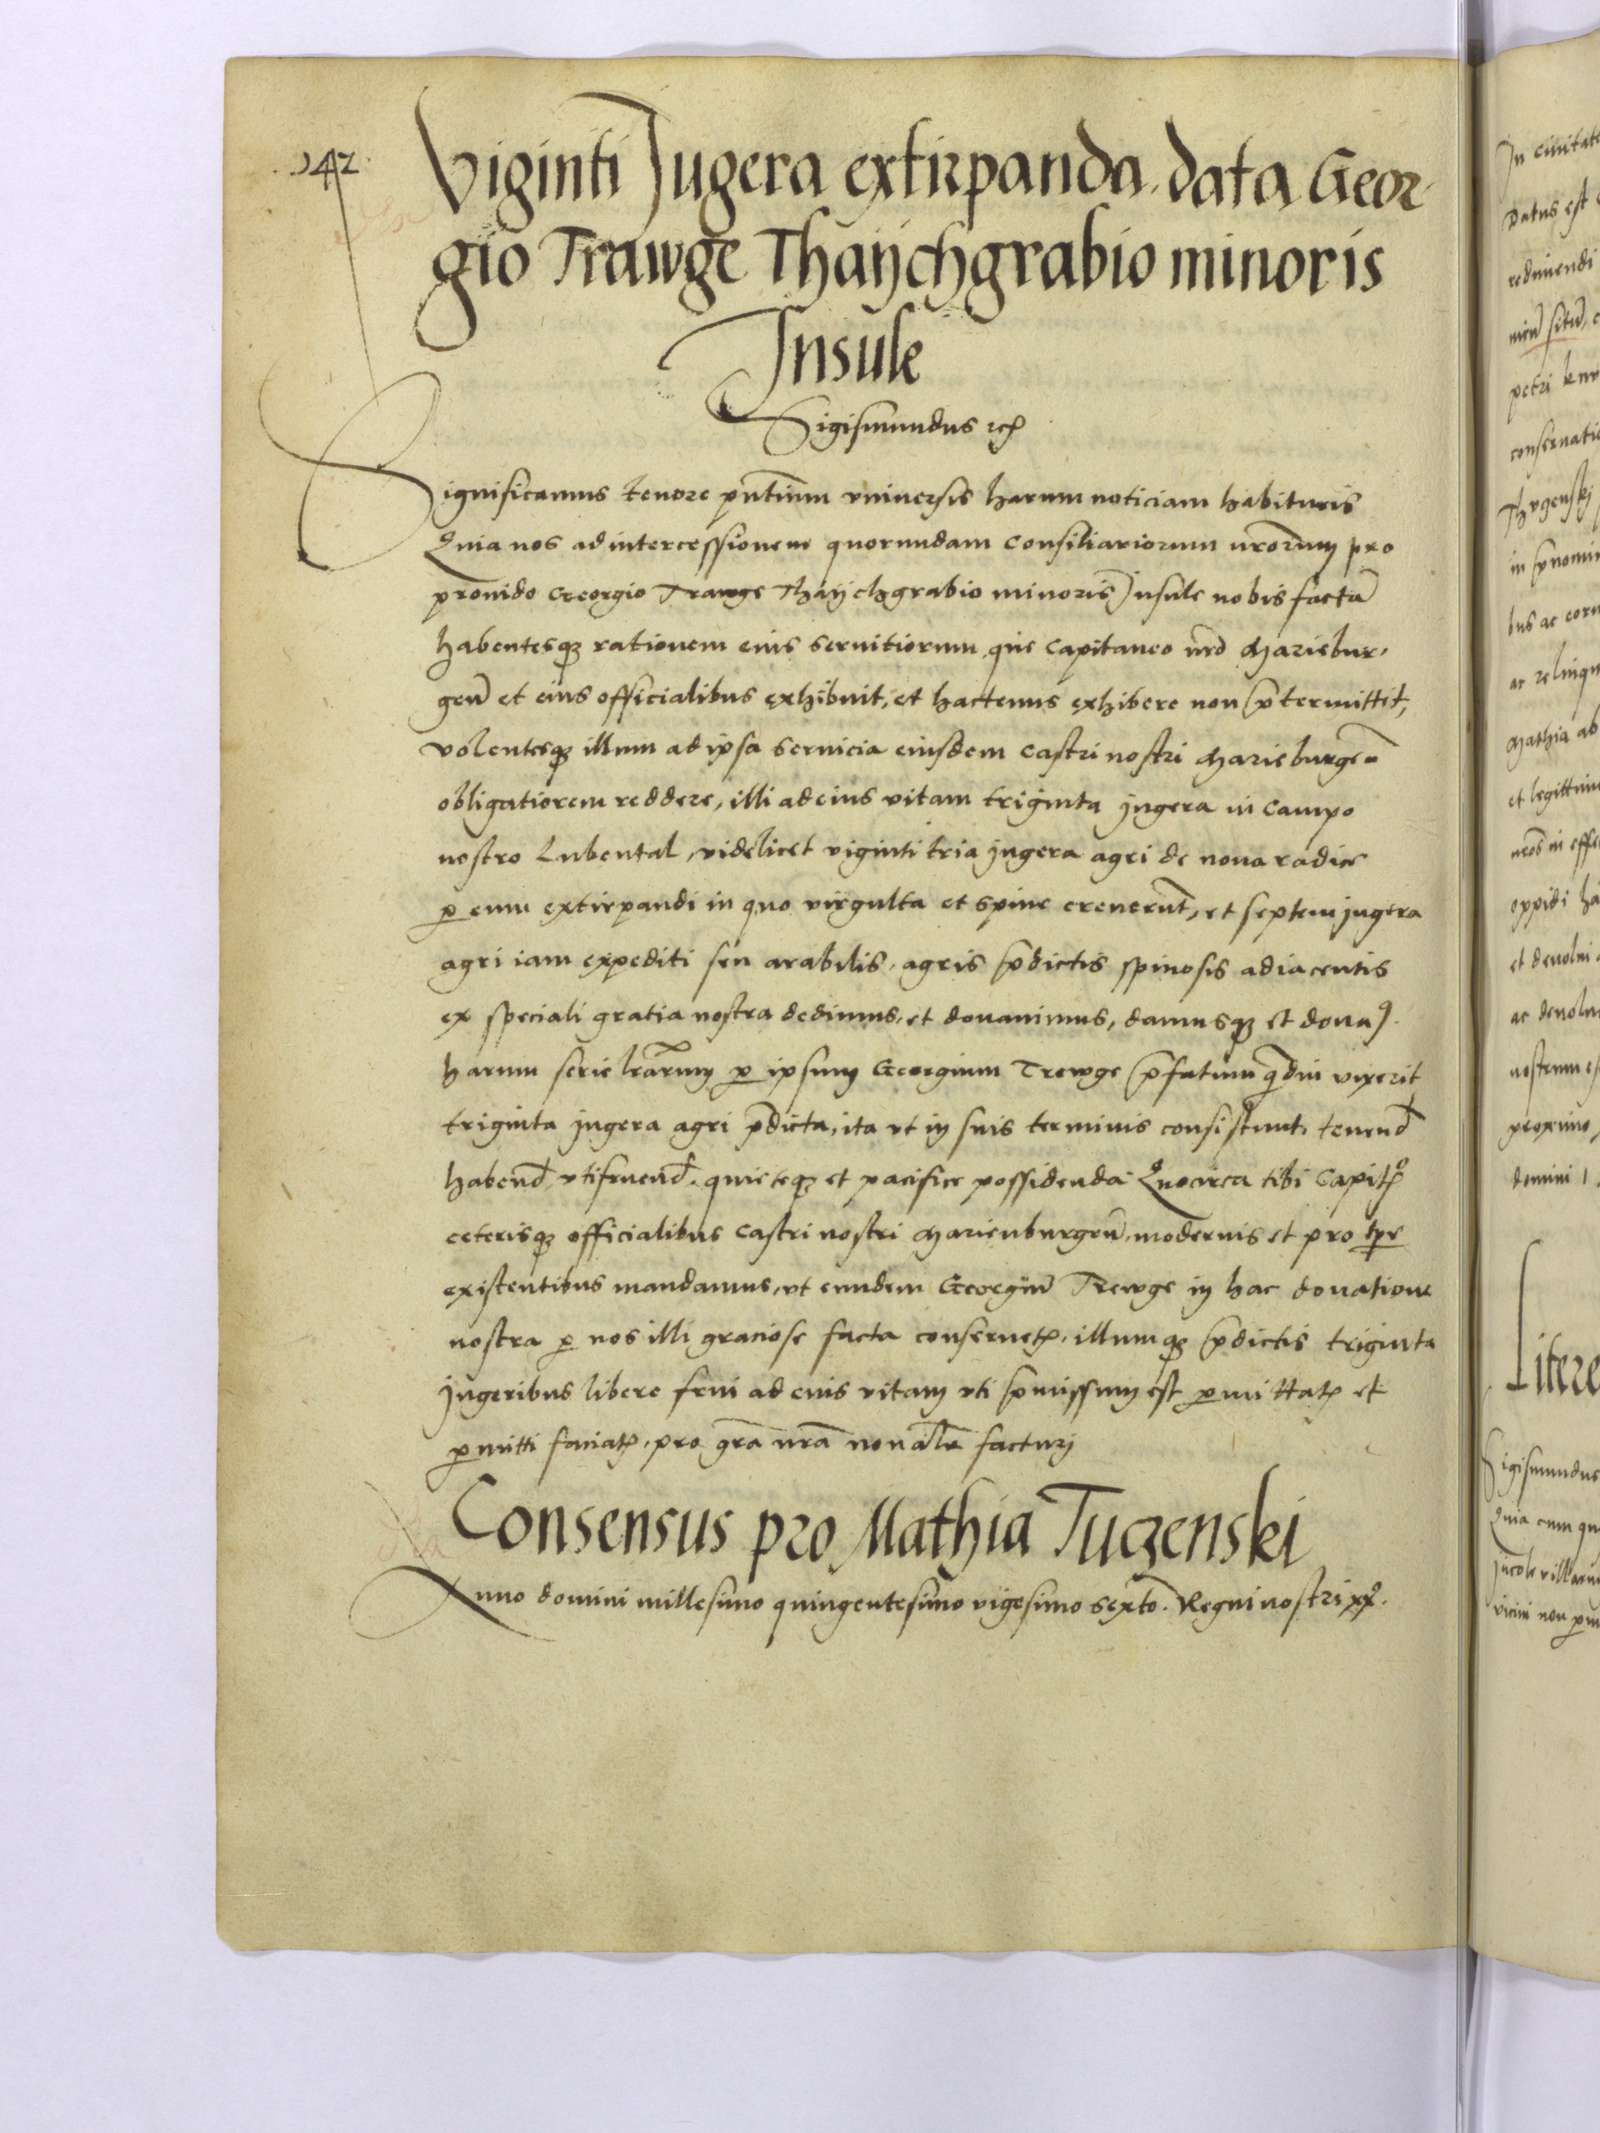 242
Viginti Jugera extirpanda data Geor-
gio Trawge Thaÿchgrabio minoris
Insule
Sigismundus rex
Significamus tenore pñtium vniuersis harum noticiam habituris
Quia nos ad intercessionem quorundam consiliariorum nrorum pro
prouido Georgio Trawge Thaÿchgrabio minoris Insule nobis factã
habentesqȝ rationem eius seruitiorum que capitaneo nrõ Mariebur-
geñ et eius officialibus exhibuit, et hactenus exhibere non p̃termittit,
volentesqȝ illum ad ipsa seruicia eiusdem castri nostri Marieburgeñ
obligatiorem reddere, illi ad eius vitam triginta jugera in campo
nostro Lubental, videlicet viginti tria jugera agri de noua radice
ꝑ eum extirpandi in quo virgulta et spine creuerũt, et septem jugera
agri iam expediti seu arabilis, agris p̃dictis spinosis adiacentis
ex speciali gratia nostra dedimus, et donauimus, damusqȝ et donaꝯ.
harum serie lr̃arum ꝑ ipsum Georgium Trewge p̃fatum q̃diu vixerit
triginta jugera agri p̃dicta, ita vt in suis terminis consistunt, tenend̃
habend̃ vtifruend̃. quieteqȝ et pacifice possidenda Quocirca tibi Capitꝰ
ceterisqȝ officialibus castri nostri Marienburgeñ, modernis et pro tp̃re
existentibus mandamus, vt eundem Georgiũ Trewge in hac donatione
nostra ꝑ nos illi graciose facta conseruetꝭ, illumqȝ p̃dictis triginta
jugeribus libere frui ad euis vitam vti p̃missum est ꝑmittatꝭ et
ꝑmitti faciatꝭ, pro gr̃a nr̃a non alr̃ facturj
Consensus pro Mathia Tuczenski
Anno domini millesimo quingentesimo vigesimo sexto. Regni nostri xx°.
In ciuitate
datus est
redimendi
petri
conseruatio
bus ac
ac relinqu
Mathia ab
et legittim
oppidi
et deuolui
ac deuolu
nostrum
proximo,
domini 1
Litere
Sigismundus
Quia cum
Incole villarum
vicini non